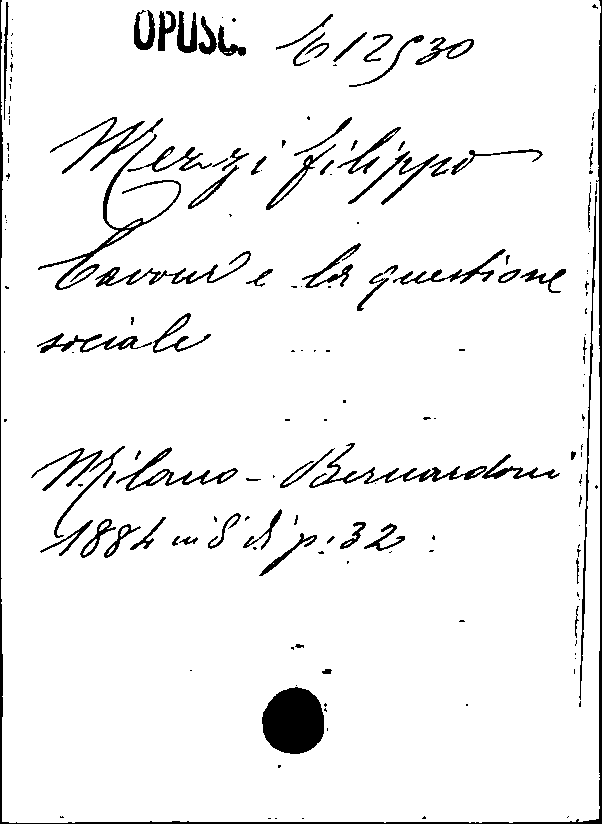 OPUSC. E 12530
Merzi Filippo
Cavour e la questione
sociale
Milano - Bernardoni
1884 in 8° di p. 32